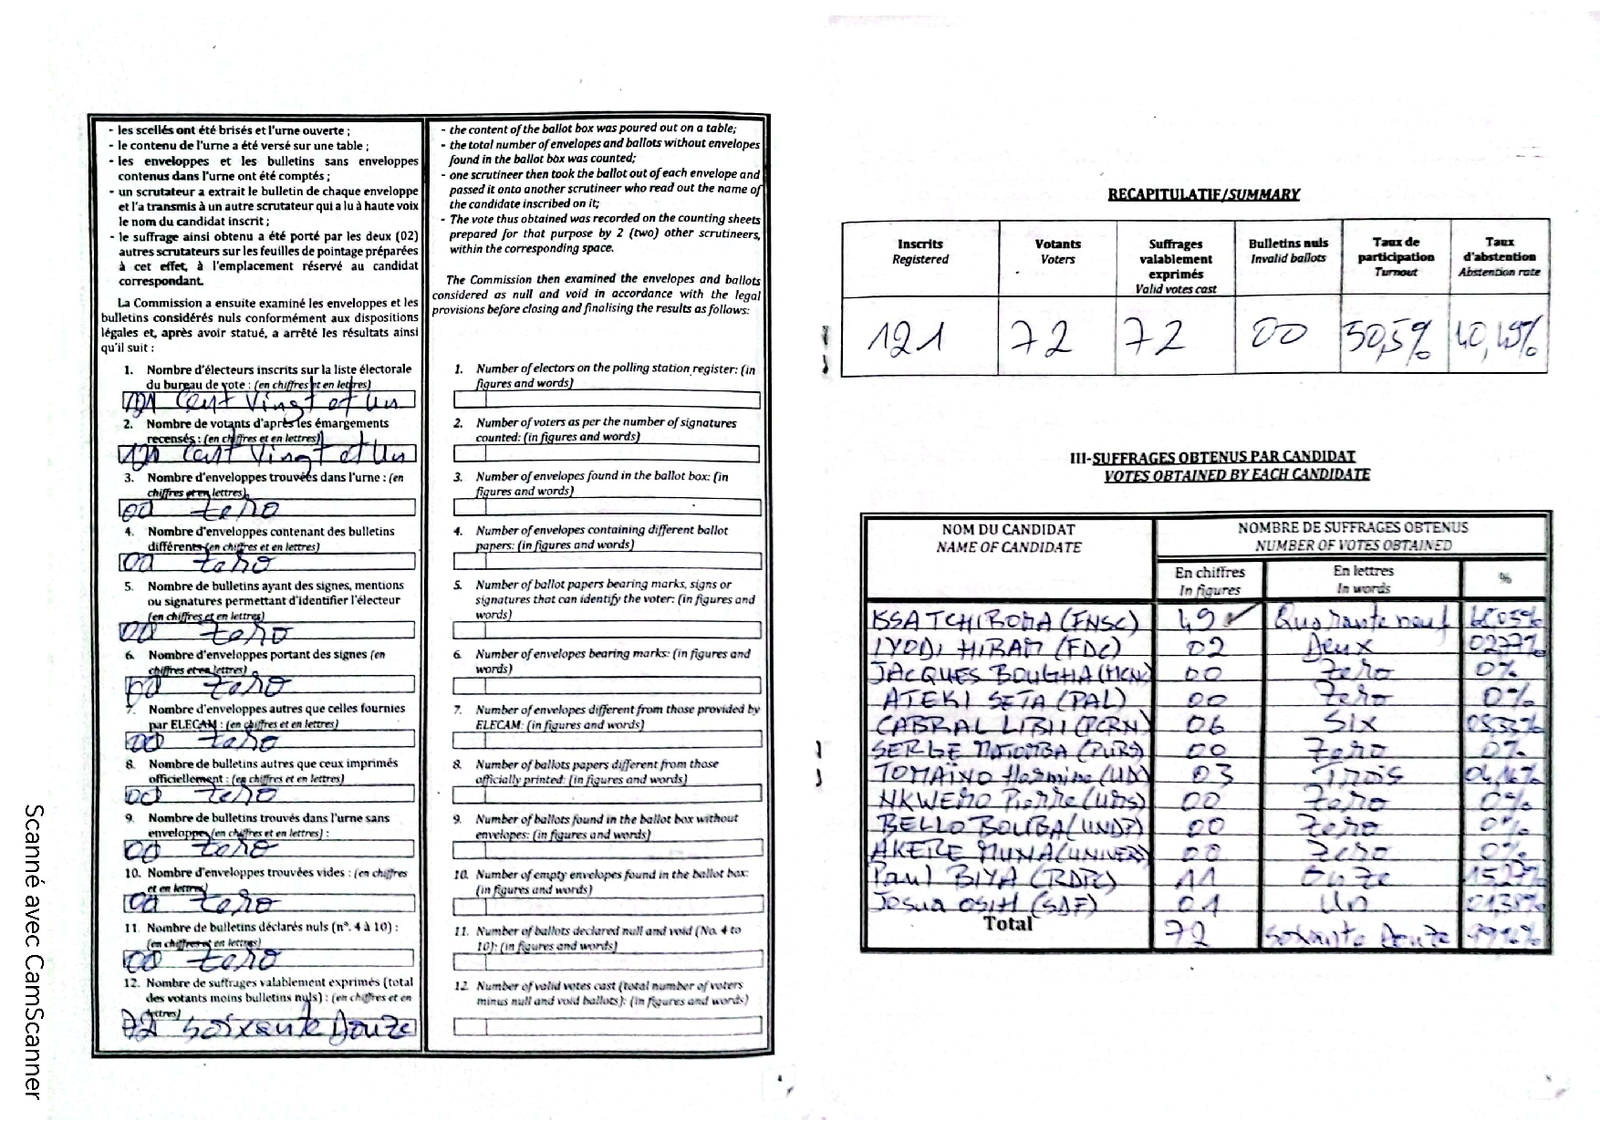 - les scellés ont été brisés et l'urne ouverte ;
- le contenu de l'urne a été versé sur une table ;
- les enveloppes et les bulletins sans enveloppes
contenus dans l'urne ont été comptés ;
- un scrutateur a extrait le bulletin de chaque enveloppe
et l'a transmis à un autre scrutateur qui a lu à haute voix
le nom du candidat inscrit ;
- le suffrage ainsi obtenu a été porté par les deux (02)
autres scrutateurs sur les feuilles de pointage préparées
à cet effet, à l'emplacement réservé au candidat
correspondant.
La Commission a ensuite examiné les enveloppes et les
bulletins considérés nuls conformément aux dispositions
légales et, après avoir statué, a arrêté les résultats ainsi
qu'il suit :
1. Nombre d'électeurs inscrits sur la liste électorale
du bureau de vote : (en chiffres et en lettres)
121 Cent Vingt et Un
2. Nombre de votants d'après les émargements
recensés : (en chiffres et en lettres)
121 Cent Vingt et Un
3. Nombre d'enveloppes trouvées dans l'urne : (en
chiffres et en lettres)
00 zero
4. Nombre d'enveloppes contenant des bulletins
différents (en chiffres et en lettres)
00 zero
5. Nombre de bulletins ayant des signes, mentions
ou signatures permettant d'identifier l'électeur
(en chiffres et en lettres)
00 zero
6. Nombre d'enveloppes portant des signes (en
chiffres et en lettres)
00 zero
7. Nombre d'enveloppes autres que celles fournies
par ELECAM : (en chiffres et en lettres)
00 zero
8. Nombre de bulletins autres que ceux imprimés
officiellement : (en chiffres et en lettres)
00 zero
9. Nombre de bulletins trouvés dans l'urne sans
enveloppe (en chiffres et en lettres) :
00 zero
10. Nombre d'enveloppes trouvées vides : (en chiffres
et en lettres)
00 zero
11. Nombre de bulletins déclarés nuls (n°. 4 à 10) :
(en chiffres et en lettres)
00 zero
12. Nombre de suffrages valablement exprimés (total
des votants moins bulletins nuls) : (en chiffres et en
lettres)
72 soixante Douze
- the content of the ballot box was poured out on a table;
- the total number of envelopes and ballots without envelopes
found in the ballot box was counted;
- one scrutineer then took the ballot out of each envelope and
passed it onto another scrutineer who read out the name of
the candidate inscribed on it;
- The vote thus obtained was recorded on the counting sheets
prepared for that purpose by 2 (two) other scrutineers,
within the corresponding space.
The Commission then examined the envelopes and ballots
considered as null and void in accordance with the legal
provisions before closing and finalising the results as follows:
1. Number of electors on the polling station register: (in
figures and words)
2. Number of voters as per the number of signatures
counted: (in figures and words)
3. Number of envelopes found in the ballot box: (in
figures and words)
4. Number of envelopes containing different ballot
papers: (in figures and words)
5. Number of ballot papers bearing marks, signs or
signatures that can identify the voter: (in figures and
words)
6. Number of envelopes bearing marks: (in figures and
words)
7. Number of envelopes different from those provided by
ELECAM: (in figures and words)
8. Number of ballots papers different from those
officially printed: (in figures and words)
9. Number of ballots found in the ballot box without
envelopes: (in figures and words)
10. Number of empty envelopes found in the ballot box:
(in figures and words)
11. Number of ballots declared null and void (No. 4 to
10): (in figures and words)
12. Number of valid votes cast (total number of voters
minus null and void ballots): (in figures and words)
Scanné avec CamScanner
RECAPITULATIF/SUMMARY
Inscrits Registered Votants Voters Suffrages valablement exprimés Valid votes cast Bulletins nuls Invalid ballots Taux de participation Turnout Taux d'abstention Abstention rate
121 72 72 00 50,5% 40,49%
III-SUFFRAGES OBTENUS PAR CANDIDAT
VOTES OBTAINED BY EACH CANDIDATE
NOM DU CANDIDAT NOMBRE DE SUFFRAGES OBTENUS
NAME OF CANDIDATE NUMBER OF VOTES OBTAINED
En chiffres En lettres %
In figures In words
ISSA TCHIROMA (FNSC) 49 Quarante neuf 68,05%
IYODI HIRAM (FDC) 02 Deux 02,77%
JACQUES BOUGHA (MCNC) 00 Zero 0%
ATEKI SETA (PAL) 00 Zero 0%
CABRAL LIBII (PCRN) 06 Six 08,33%
SERGE MATOMBA (PURS) 00 Zero 0%
TOMAÏNO Hermine (UM) 03 Trois 04,16%
NKWEMO Pierre (UMS) 00 Zero 0%
BELLO BOUBA (UNDP) 00 Zero 0%
AKERE MUNA (UNIVERS) 00 Zero 0%
Paul BIYA (RDPC) 11 Onze 15,27%
Josua OSIH (SDF) 01 Un 01,38%
Total 72 soixante Douze 99,96%